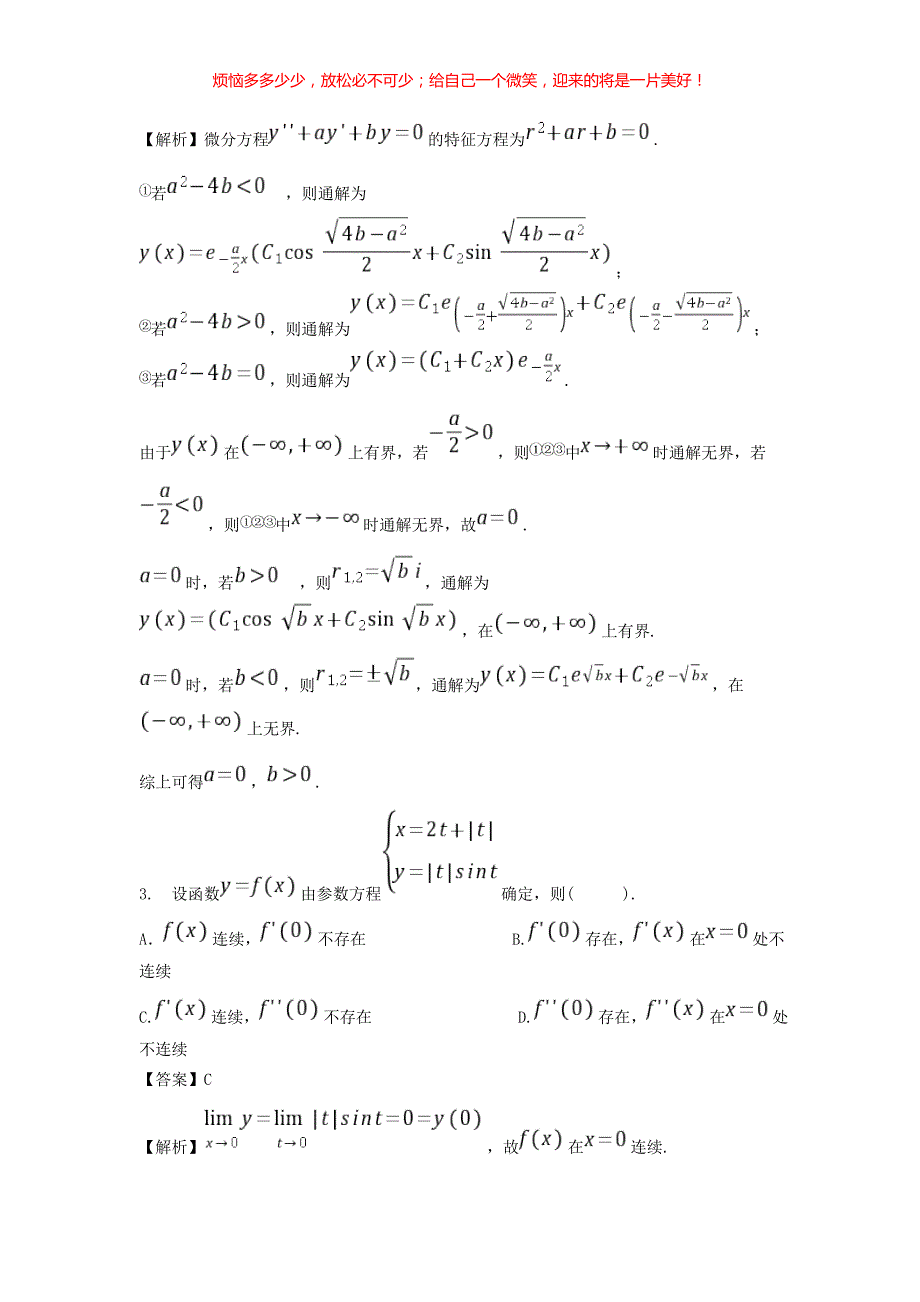 烦恼多多少少，放松必不可少；给自己一个微笑，迎来的将是一片美好！
【解析】微分方程y''+ay'+by=0的特征方程为r²+ar+b=0.
①若a²-4b<0 ，则通解为
y(x)=e-a/2x(C₁cos √(4b-a²)/2 x+C₂sin √(4b-a²)/2 x) ；
②若a²-4b>0，则通解为y(x)=C₁e(-a/2+√(4b-a²)/2)x+C₂e(-a/2-√(4b-a²)/2)x；
③若a²-4b=0，则通解为y(x)=(C₁+C₂x)e-a/2x.
由于y(x)在(-∞,+∞)上有界，若-a/2>0，则①②③中x→+∞时通解无界，若
-a/2<0，则①②③中x→-∞时通解无界，故a=0.
a=0时，若b>0 ，则r₁,₂=√b i，通解为
y(x)=(C₁cos √b x+C₂sin √b x)，在(-∞,+∞)上有界.
a=0时，若b<0，则r₁,₂=±√b，通解为y(x)=C₁e√bx+C₂e-√bx，在
(-∞,+∞)上无界.
综上可得a=0，b>0.
3. 设函数y=f(x)由参数方程{x=2t+|t| y=|t|sint 确定，则( ).
A．f(x)连续，f'(0)不存在 B.f'(0)存在，f'(x)在x=0处不
连续
C.f'(x)连续，f''(0)不存在 D.f''(0)存在，f''(x)在x=0处
不连续
【答案】C
【解析】lim x→0 y=lim t→0 |t|sint=0=y(0)，故f(x)在x=0连续.